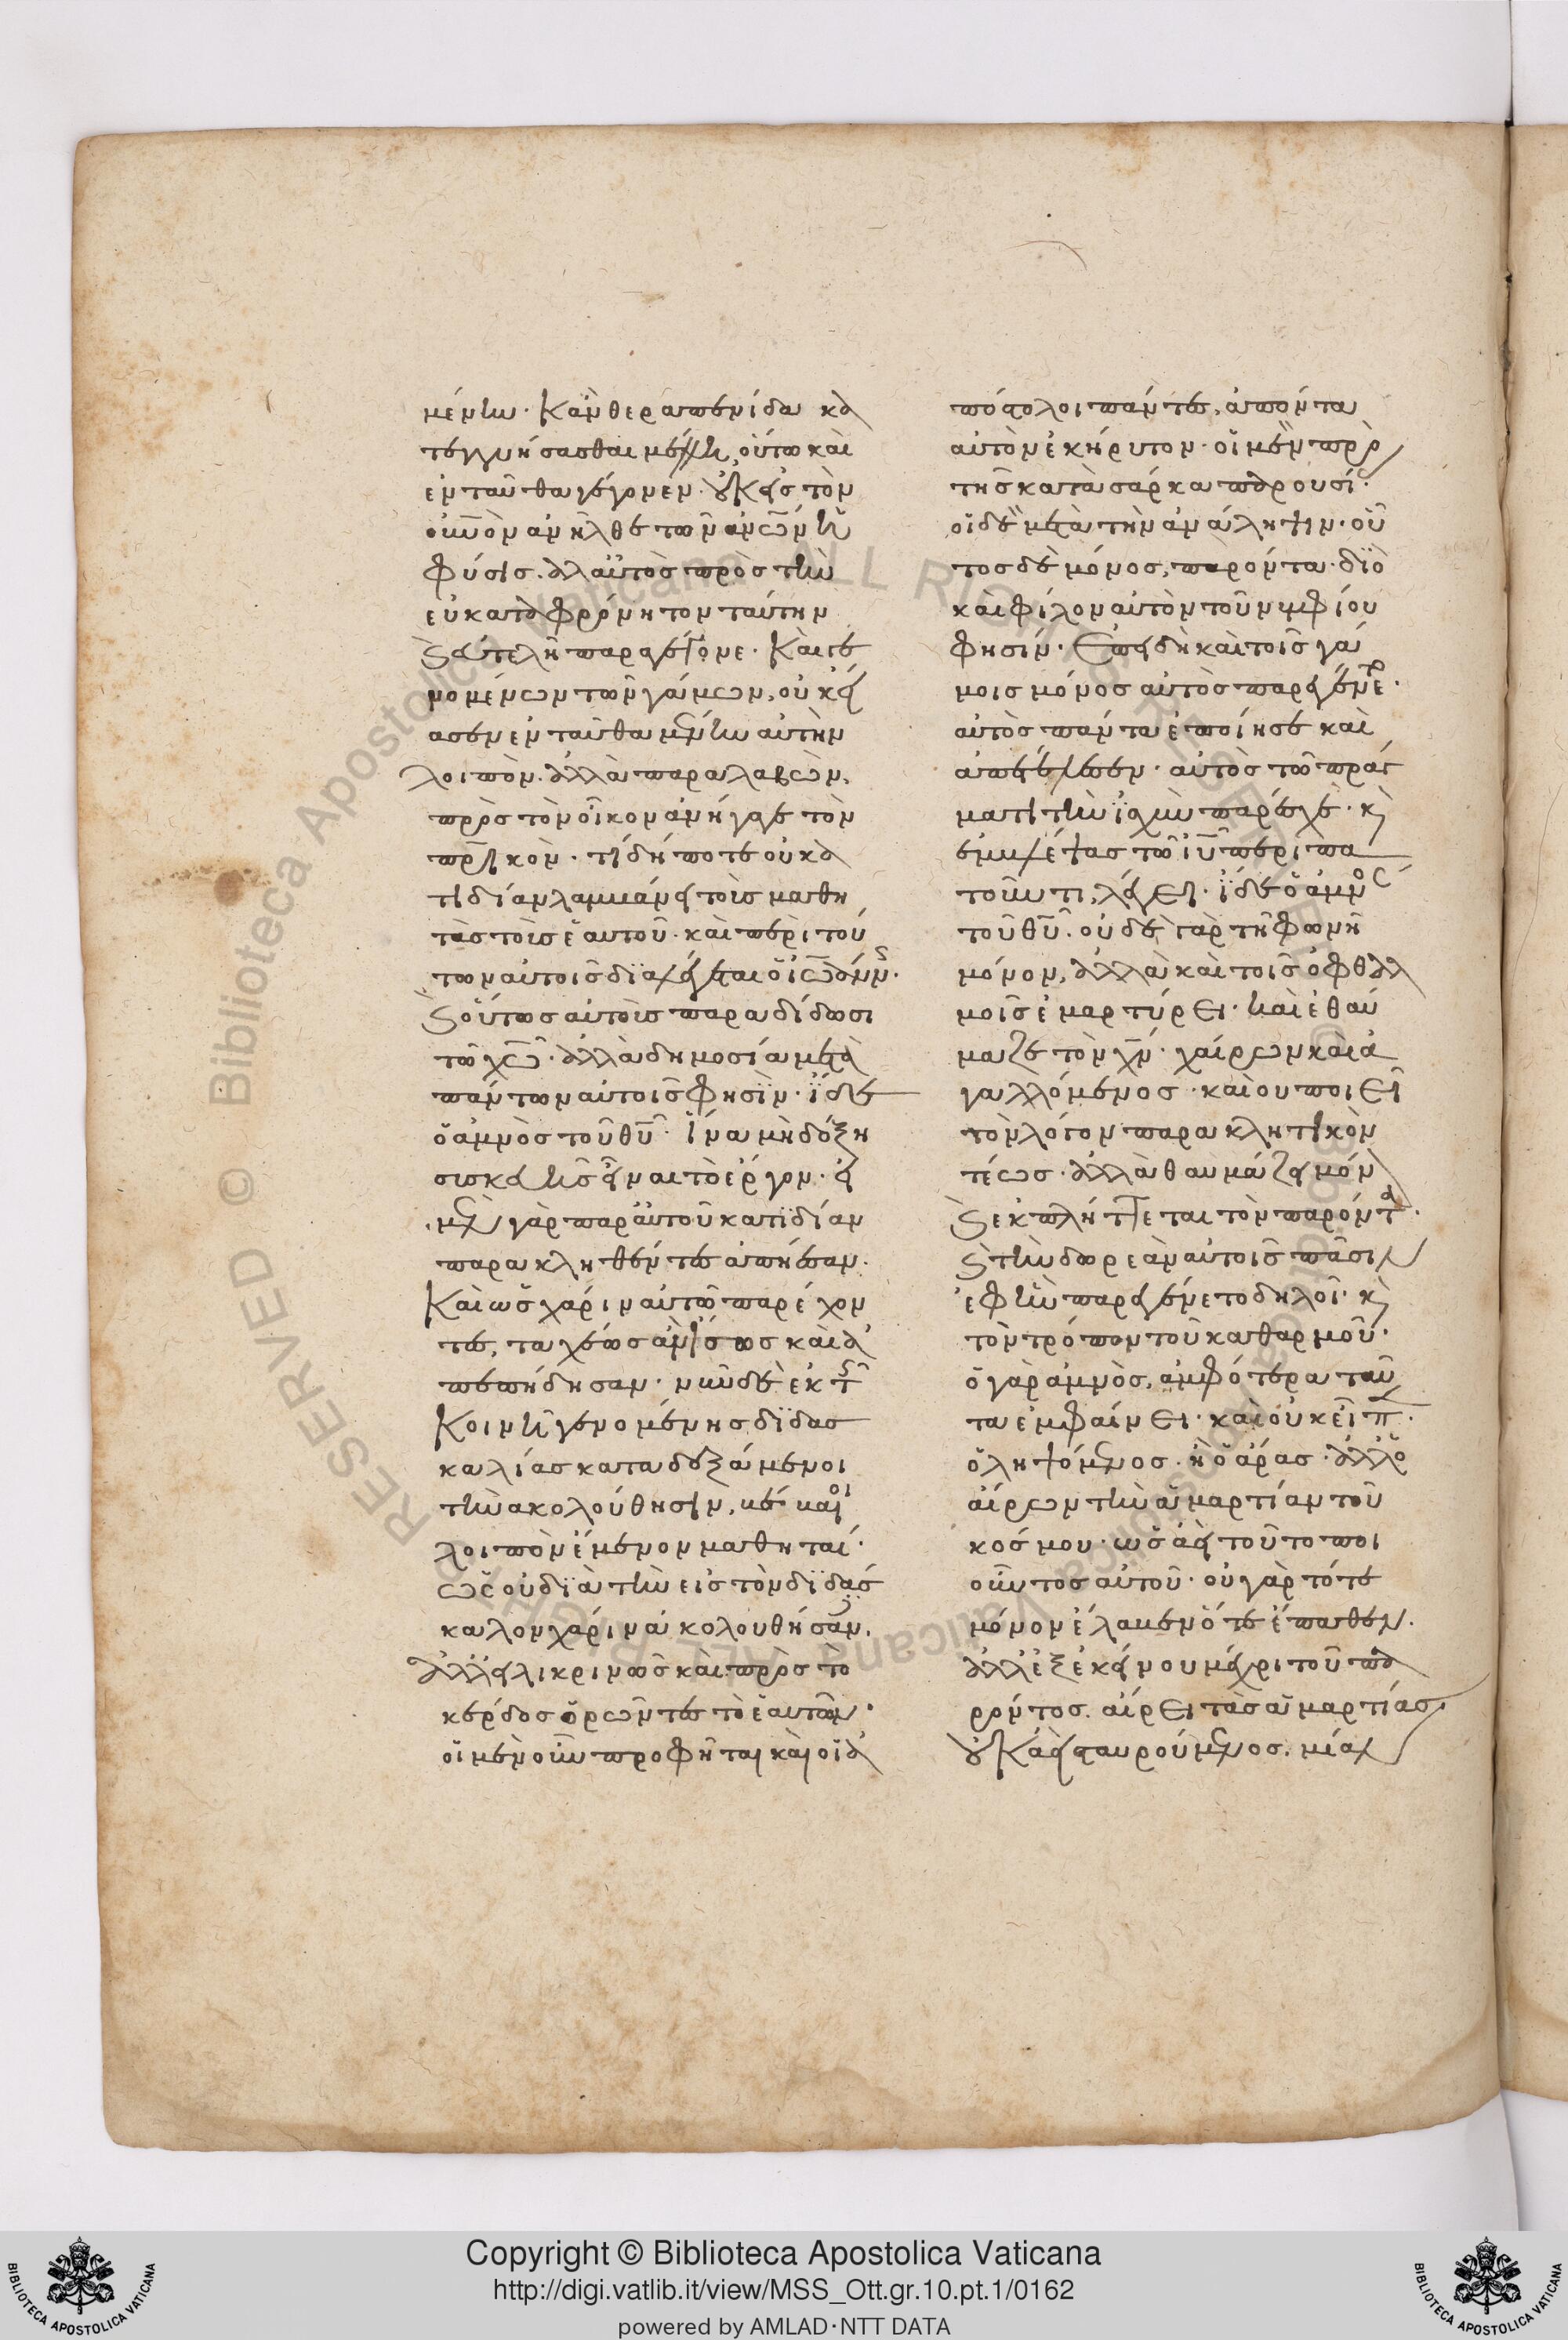 μένην· κἂν θεραπενίδα κα
τεγγυήσασθαι μέλλη, οὕτω καὶ
ἐνταῦθα γέγονεν· οὐκ εἰς τὸν
οὐνὸν ἀνῆλθε τῶν ἀνῶν ἡ
φύσις· ἀλλ αὐτὸς πρὸς τὴν
εὐκαταφρόνητον ταύτην
καὶ εὐτελῆ παραγέγονε· Καὶ γε
νομένων τῶν γάμων, οὐκ εἴ
ασεν ἐνταῦθα μένειν αὐτὴν
λοιπὸν· ἀλλὰ παραλαβὼν,
πρὸς τὸν οἶκον ἀνήγαγε τὸν
πρικὸν· τί δήποτε οὐ κα
τιδίαν λαμβάνει τοὺς μαθη
τὰς τοὺς ἑαυτοῦ· καὶ περὶ τού
των αὐτοῖς διαλέγεται ὁ ἰωάννης·
καὶ οὕτως αὐτοὺς παραδίδωσι
τῶ χῶ· ἀλλὰ δημοσία μετὰ
πάντων αὐτοῖς φησὶν· ἴδε
ὁ ἀμνὸς τοῦ θυ· ἵνα μὴ δόξη
συσκευῆς εἶναι τὸ ἔργον· εἰ
μὲν γὰρ παρ αὐτοῦ κατιδίαν
παρακληθέντες ἀπήεσαν·
Καὶ ὡς χάριν αὐτῶ παρέχον
τες, ταχέως ἂν ἴσως καὶ ἀ
πεπήδησαν· νῦν δὲ ἐκ τῆς
κοινῆ γενομένης διδας
καλίας καταδεξάμενοι
τὴν ἀκολούθησιν, βέβαιοι
λοιπὸν ἔμενον μαθηταί·
ὡς οὐ διὰ τὴν εἰς τὸν διδάσ
καλον χάριν ἀκολουθήσαντες,
ἀλλ εἰλικρινῶς καὶ πρὸς τὸ
κέρδος ὁρῶντες τὸ ἑαυτῶν·
οἱ μὲν οὖν προφῆται καὶ οἱ ἀ
πόστολοι πάντες, ἀπόντα
αὐτὸν ἐκήρυτον· οἱ μὲν πρὸ
τῆς κατὰ σάρκα παρουσίας·
οἱ δὲ μετὰ τὴν ἀνάληψιν· οὗ
τος δὲ μόνος, παρόντα· διὸ
καὶ φίλον αὐτὸν τοῦ νυμφίου
φησίν· Ἐπειδὴ καὶ τοῖς γά
μοις μόνος αὐτὸς παρεγένετο·
αὐτὸς πάντα ἐποίησε καὶ
ἀπετέλεσεν· αὐτὸς τῶ πράγ
ματι τὴν ἰσχὺν παρέσχε· καὶ
ἐμβλέψας τῶ ιυ περιπα
τοῦντι, λέγει· ἴδε ὁ ἀμνὸς
τοῦ θυ· οὐδὲ γὰρ τῆ φωνῆ
μόνον, ἀλλὰ καὶ τοῖς ὀφθαλ
μοῖς ἐμαρτύρει· καὶ ἐθαύ
μαζε τὸν χν· χαίρων καὶ ἀ
γαλλόμενος· καὶ οὐ ποιεῖ
τὸν λόγον παρακλητικὸν
τέως· ἀλλὰ θαυμάζει μόνον
καὶ ἐκπλήττεται τὸν παρόντα·
καὶ τὴν δωρεὰν αὐτοῖς πᾶσιν
ἐφ ἣν παρεγένετο δηλοῖ· καὶ
τὸν τρόπον τοῦ καθαρμοῦ·
ὁ γὰρ ἀμνὸς, ἀμφότερα ταῦ
τα ἐμφαίνει· καὶ οὐκ εἶπεν·
ὁ ληψόμενος· ἢ ὁ ἄρας· ἀλλ ὁ
αἴρων τὴν ἁμαρτίαν τοῦ
κόσμου· ὡς ἀεὶ τοῦτο ποι
οῦντος αὐτοῦ· οὐ γὰρ τότε
μόνον ἔλαβεν ὅτε ἔπαθεν·
ἀλλ ἐξ ἐκείνου μέχρι τοῦ πα
ρόντος. αἴρει τὰς ἁμαρτίας·
οὐκ ἀεὶ σταυρούμενος· μίαν
Copyright © Biblioteca Apostolica Vaticana
http://digi.vatlib.it/view/MSS_Ott.gr.10.pt.1/0162
powered by AMLAD·NTT DATA